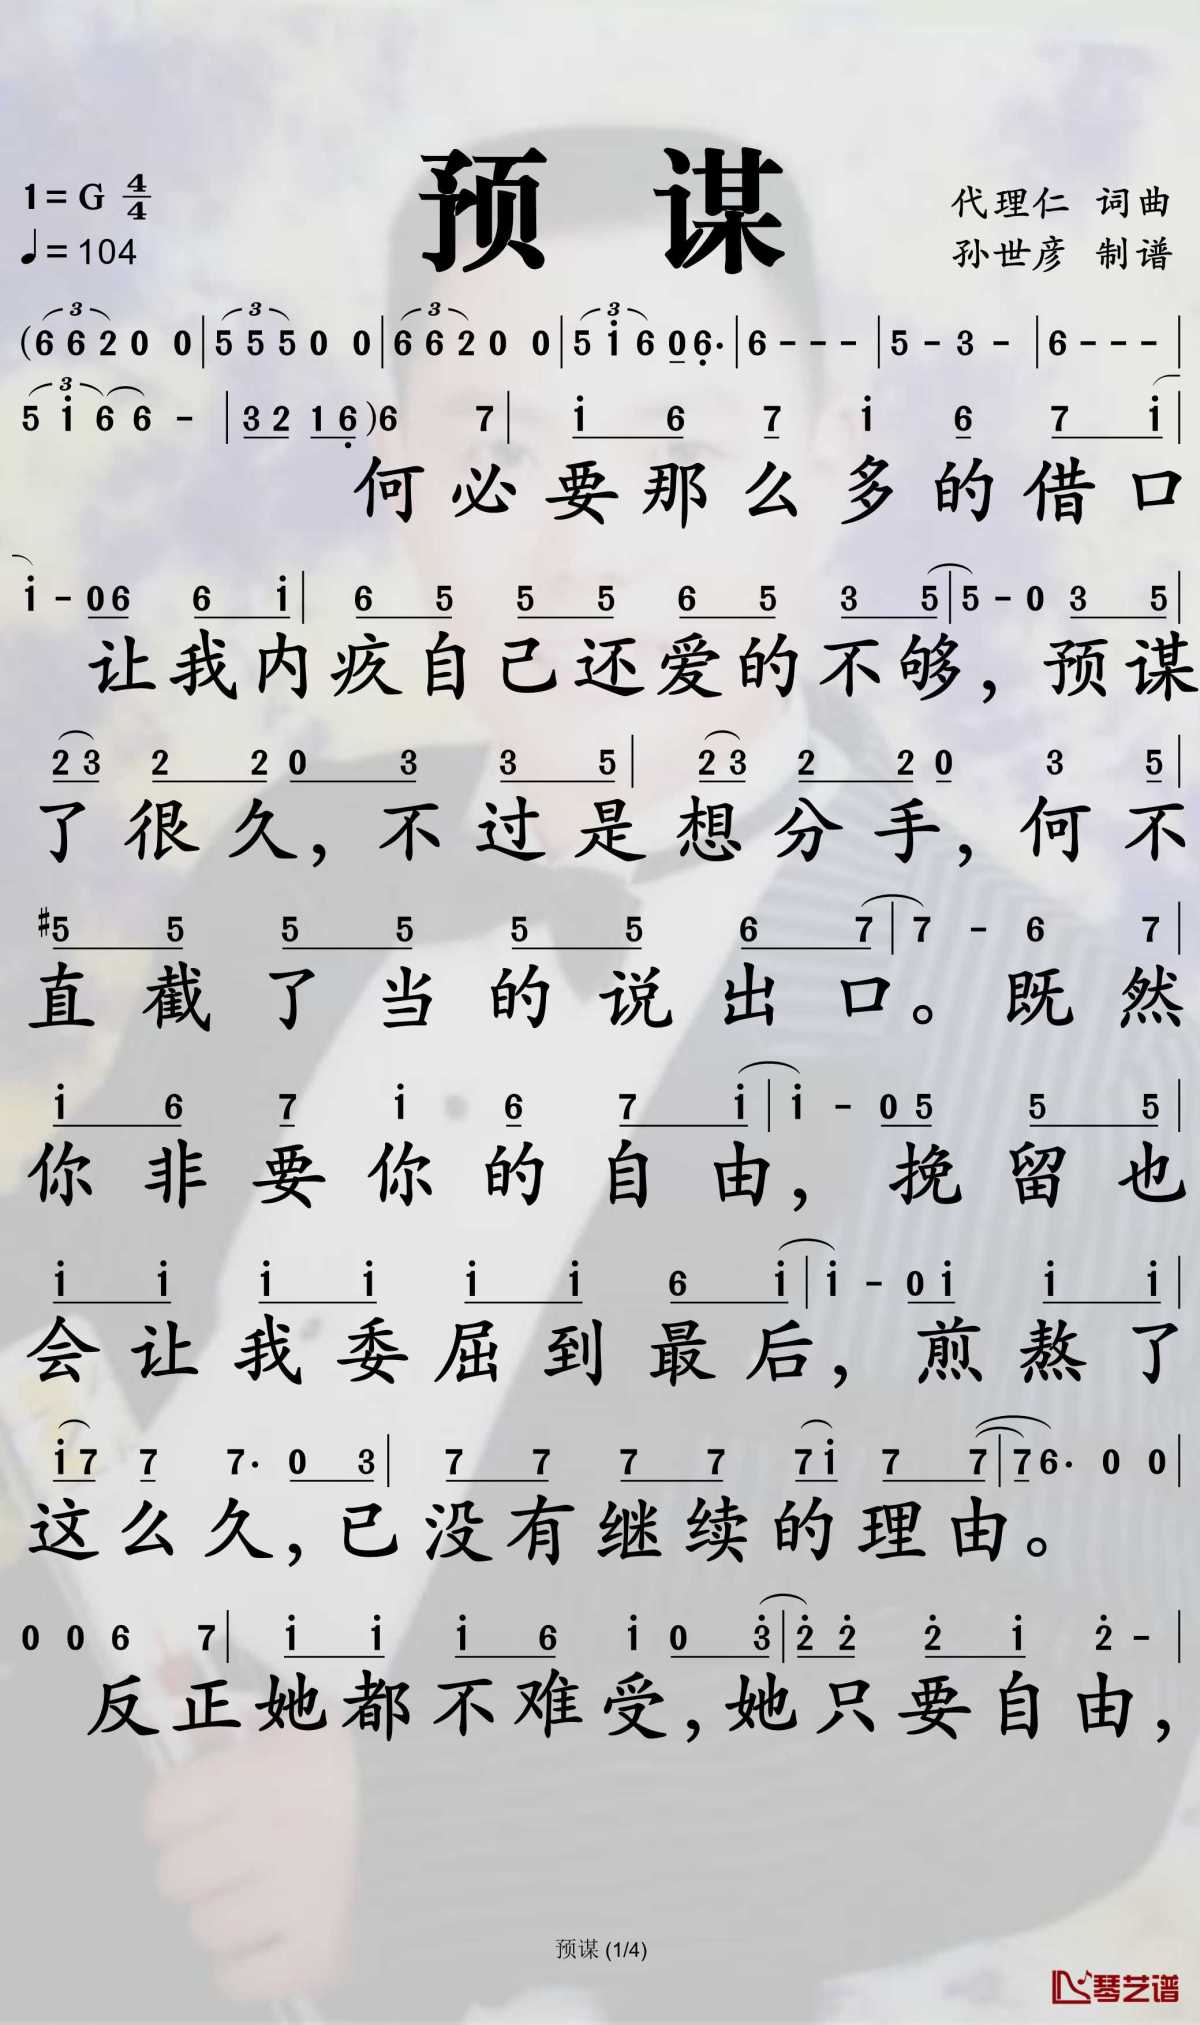 预 谋
1=G 4/4
♩=104
代理仁 词曲
孙世彦 制谱
3 3 3 3
(6 6 2 0 0 | 5 5 5 0 0 | 6 6 2 0 0 | 5 i 6 0 6̣· | 6 - - - | 5 - 3 - | 6 - - - |
3
5 i 6 6 - | 3 2 1 6̣ ) 6 7 | i 6 7 i 6 7 i |
何必要那么多的借口
i - 0 6 6 i | 6 5 5 5 6 5 3 5 | 5 - 0 3 5 |
让我内疚自己还爱的不够，预谋
2 3 2 2 0 3 3 5 | 2 3 2 2 0 3 5 |
了很久，不过是想分手，何不
#5 5 5 5 5 5 6 7 | 7 - 6 7 |
直截了当的说出口。既然
i 6 7 i 6 7 i | i - 0 5 5 5 |
你非要你的自由，挽留也
i i i i i i 6 i | i - 0 i i i |
会让我委屈到最后，煎熬了
i 7 7 7· 0 3 | 7 7 7 7 7 i 7 7 | 7 6· 0 0 |
这么久，已没有继续的理由。
0 0 6 7 | i i i 6 i 0 3̇ | 2̇ 2̇ 2̇ i 2̇ - |
反正她都不难受，她只要自由，
预谋 (1/4)
琴艺谱